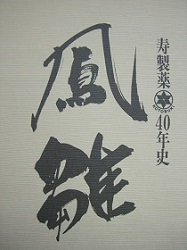 寿製薬
40年史
鳳雛